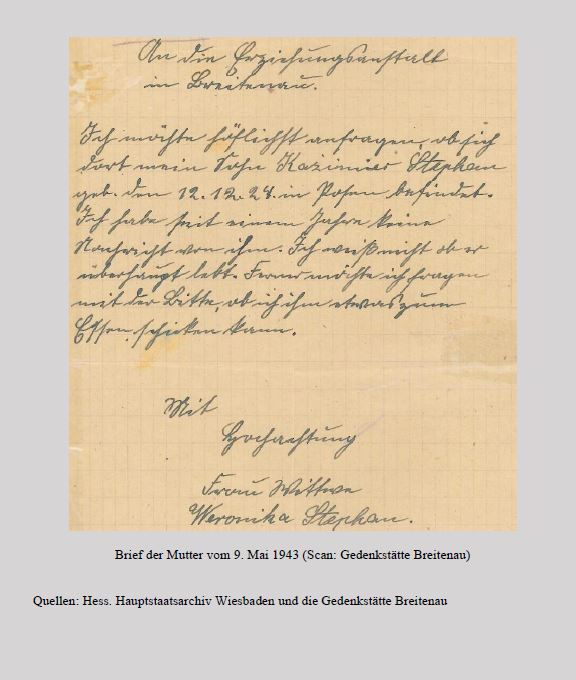 An die Erziehungsanstalt
in Breitenau.
Ich möchte höflichst anfragen, ob sich
dort mein Sohn Kazimier Stephan
geb. den 12.12.24. in Posen befindet.
Ich habe seit einem Jahre keine
Nachricht von ihm. Ich weiß nicht ob er
überhaupt lebt. Ferner möchte ich fragen
mit der Bitte, ob ich ihm etwas zum
Essen schicken kann.
Mit
Hochachtung
Frau Wittwe
Weronika Stephan.
Brief der Mutter vom 9. Mai 1943 (Scan: Gedenkstätte Breitenau)
Quellen: Hess. Hauptstaatsarchiv Wiesbaden und die Gedenkstätte Breitenau